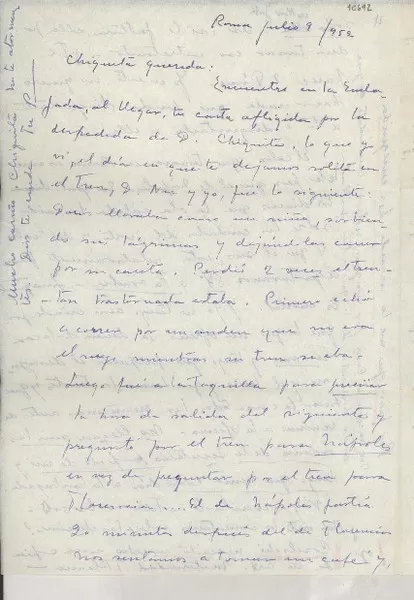 10692
Roma julio 9/952
Chiquita querida.
Encuentro en la Emba-
jada, al llegar, tu carta afligida por la
despedida de D. Chiquita, lo que yo
vi, el día en que te dejamos solita en
el tren, D. N y yo, fué lo siguiente.
Doris lloraba como una niña, sorbien-
do sus lágrimas y dejándolas correr
por su carita. Perdió 2 veces el tren
tan trastornada estaba. Primero echó
a correr por un andén que no era
el suyo mientras su tren se iba.
Luego fué a la taquilla para
la hora de salida del siguiente y
preguntó por el tren para Nápoles
en vez de preguntar por el tren para
Florencia. El de Nápoles partía
20 minutos después del de Florencia
Nos sentamos a tomar un café y
Mucho cariño, Chiquita no te atormen
tes. Dios te cuida Tu P